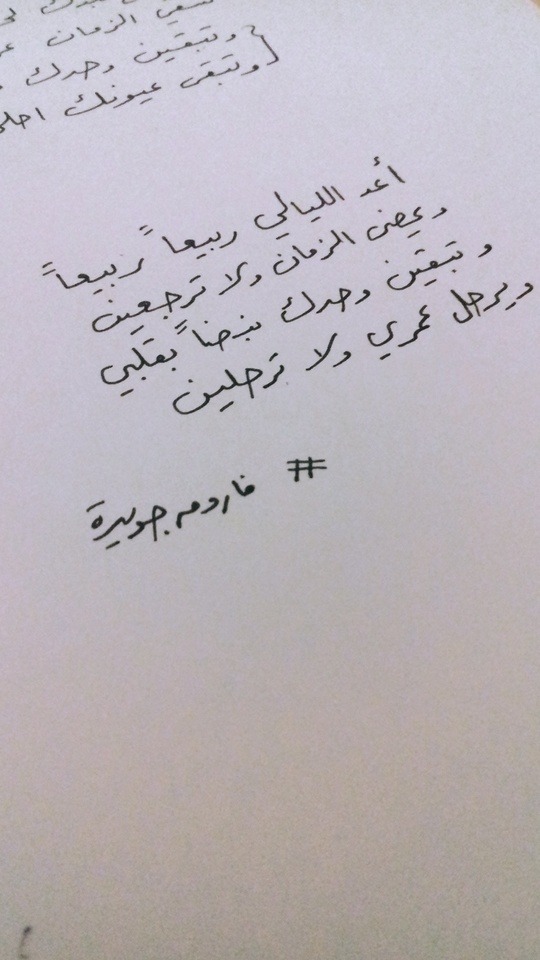 الزمان
وتبقين وحدك
{ وتبقى عيونك احلى
أعد الليالي ربيعاً ربيعاً
ويمضي الزمان ولا ترجعين
وتبقين وحدك نبضاً بقلبي
ويرحل عمري ولا ترحلين
# فاروق جويدة